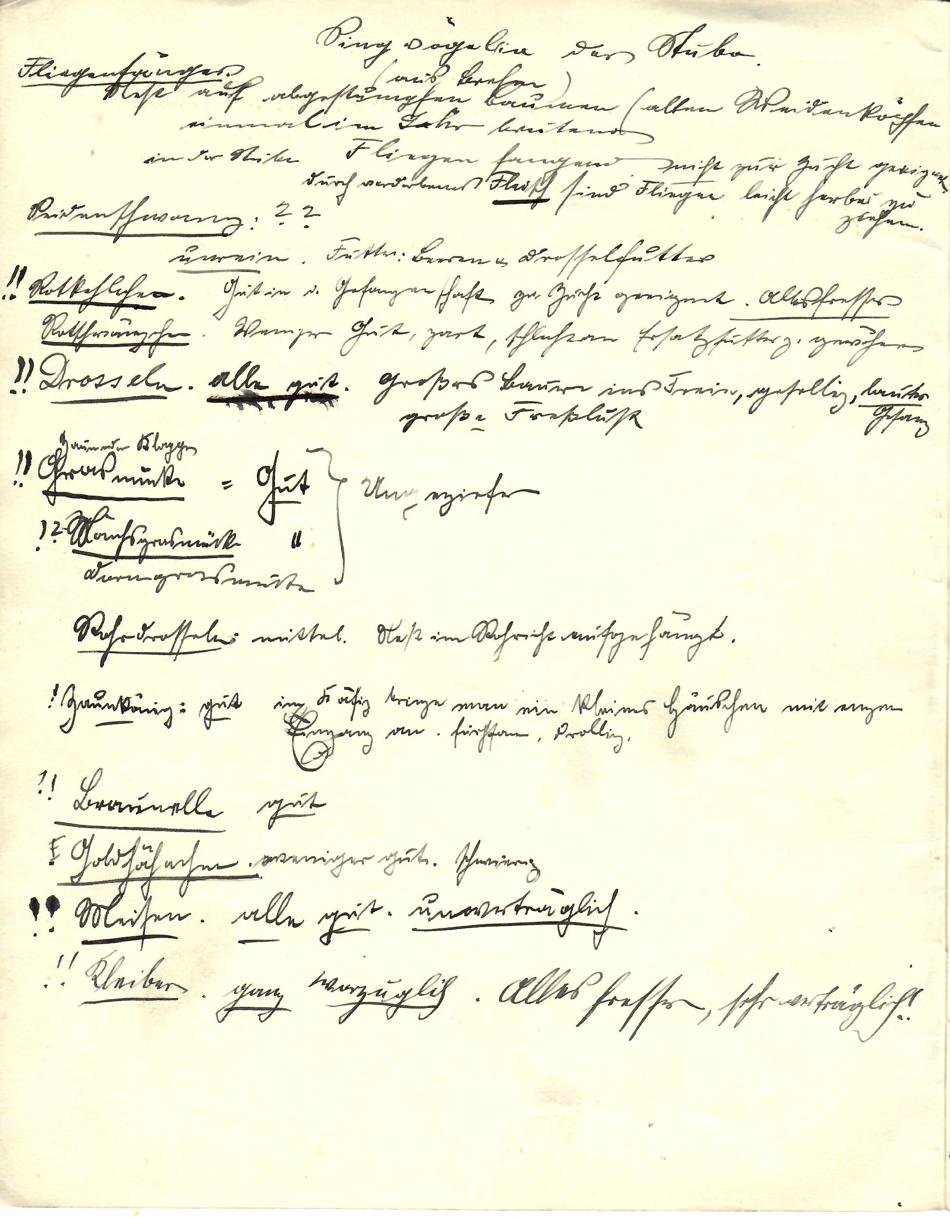 Singvögelein der Stube.
(aus Brehm)
Fliegenfänger
Nest auf abgestumpften Bäumen (alten Weidenköpfen
einmal im Jahr brütend
in der Stube Fliegen fangend nicht zur Zucht geeignet
durch verdorbenes Fleisch sind Fliegen leicht herbei zu
ziehen.
Seidenschwanz: ? ?
unrein. Futter: Beeren u. Drosselfutter
!! Rotkehlchen. Gut in d. Gefangenschaft zur Zucht geeignet. Allesfresser
Rotschwänzchen. Weniger Gut, zart, schlecht an Ersatzfutter z. gewöhnen
!! Drosseln. alle gut. Großes Bauer ins Freie, gesellig, lauter
Gesang
große Freßlust
Zaun oder Klapper
!! Grasmücke = Gut } Ungeziefer
!? Mönchsgrasmücke "
Dorngrasmücke
Rohrdrosseln: mittel. Nest im Rohricht aufgehängt.
! Zaunkönig: gut im Käfig bringe man ein kleines Häuschen mit engem
Eingang an. furchtsam, drollig.
!! Braunelle gut
! Goldhähnchen. weniger gut. schwierig
!! Meisen. alle gut. unverträglich.
!! Kleiber. ganz vorzüglich. Allesfresser, sehr verträglich!